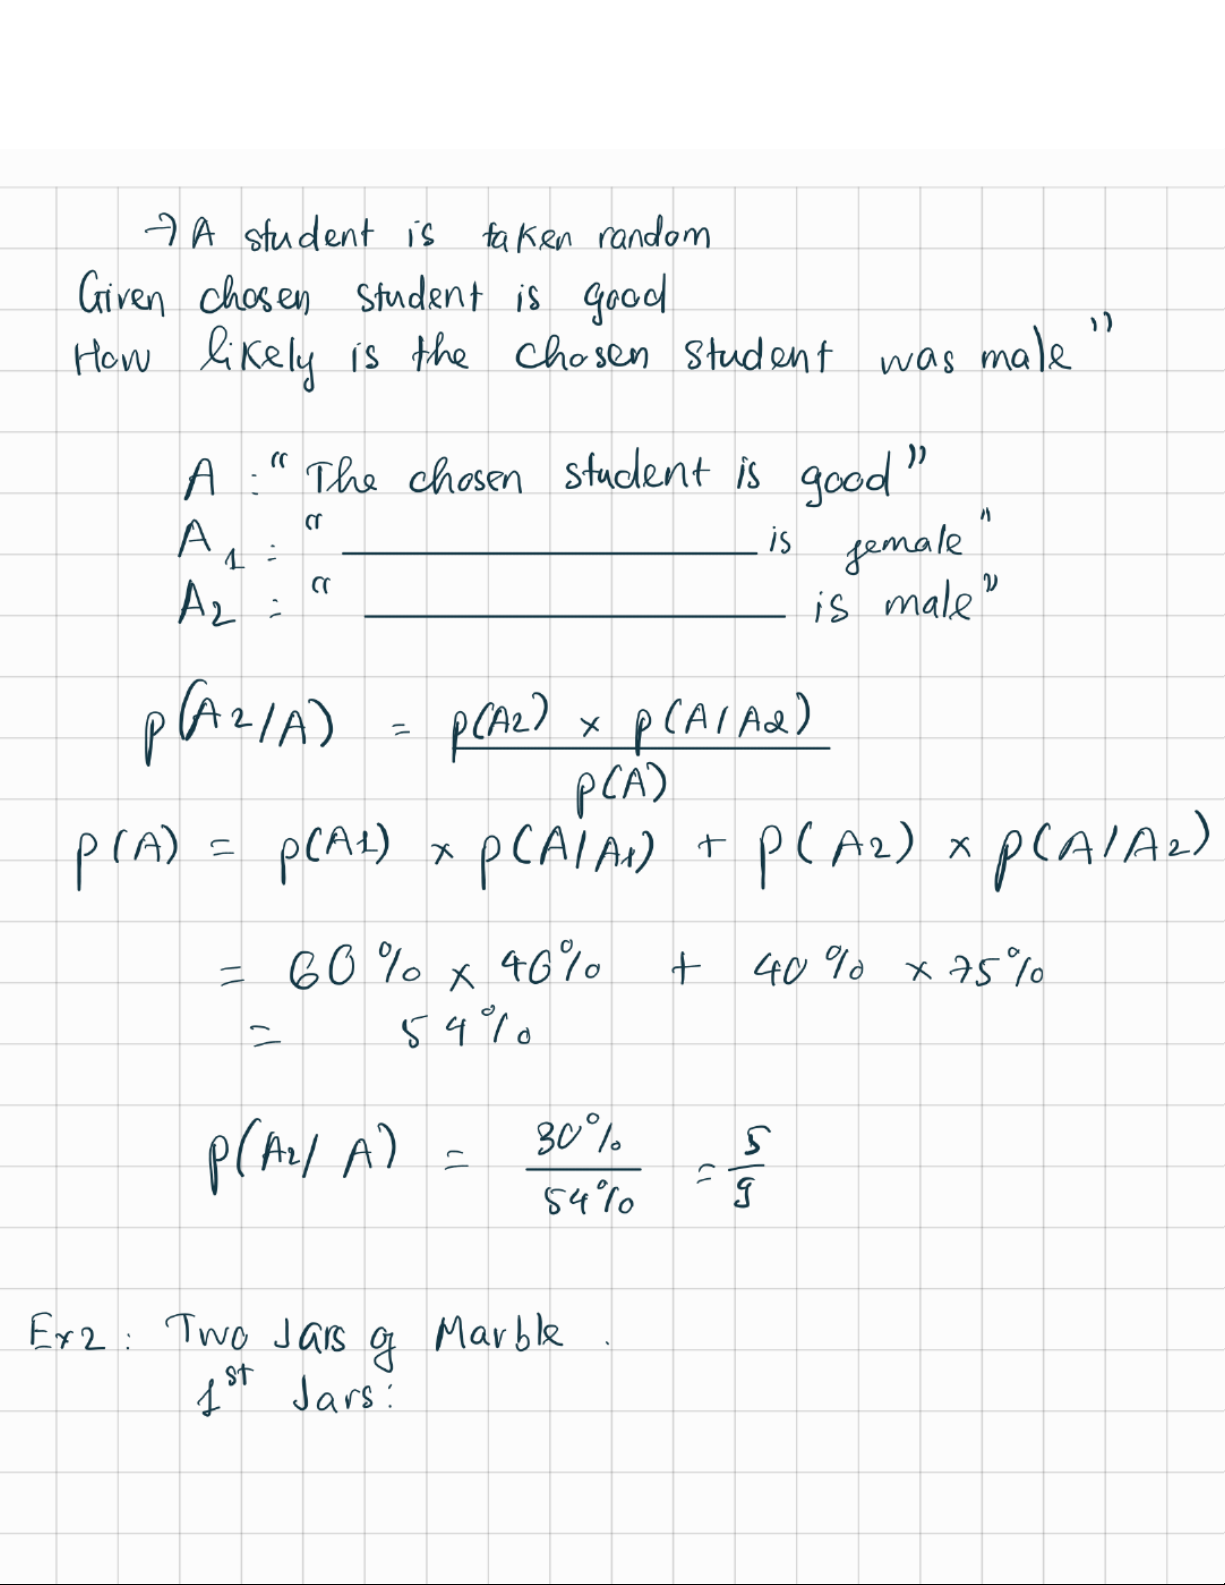 → A student is taken random
Given chosen student is good
How likely is the chosen student was male"
A : "The chosen student is good"
A1 : " ________ is female"
A2 : " ________ is male"
p(A2/A) = p(A2) x p(A/A2)
p(A)
p(A) = p(A1) x p(A/A1) + p(A2) x p(A/A2)
= 60% x 40% + 40% x 75%
= 54%
p(A2/A) = 30% / 54% = 5/9
Ex2: Two Jars of Marble.
1st Jars: